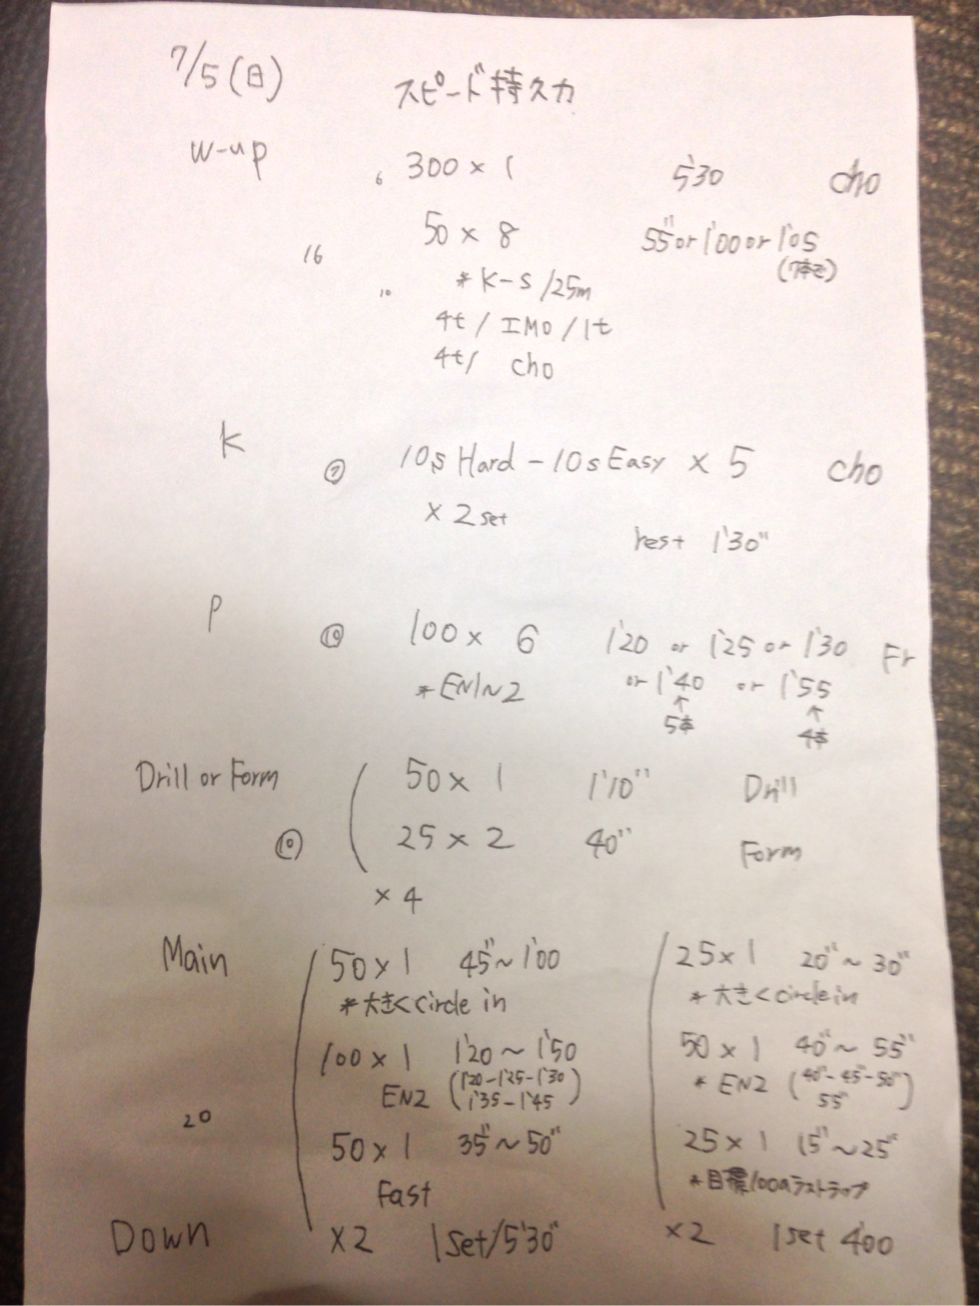 7/5(日) スピード持久力
W-up 6 300×1 5'30 cho
50×8 55"or1'00or1'05
(7本で)
16 10 *K-S/25m
4t/IMO/1t
4t/ cho
K ⑦ 10s Hard-10s Easy × 5 cho
×2set rest 1'30"
P ⑩ 100×6 1'20 or 1'25 or 1'30 Fr
*EN1~2 or 1'40 or 1'55
↑ ↑
5本 4本
Drill or Form 50×1 1'10" Drill
⑩ 25×2 40" Form
×4
Main 50×1 45"~1'00 25×1 20"~30"
*大きくcircle in *大きくcircle in
100×1 1'20~1'50 50×1 40"~55"
EN2 (1'20-1'25-1'30 *EN2 (40"-45"-50"
1'35-1'45) 55")
20 50×1 35"~50" 25×1 15"~25"
Fast *目標100mラストラップ
Down ×2 1set/5'30" ×2 1set 4'00